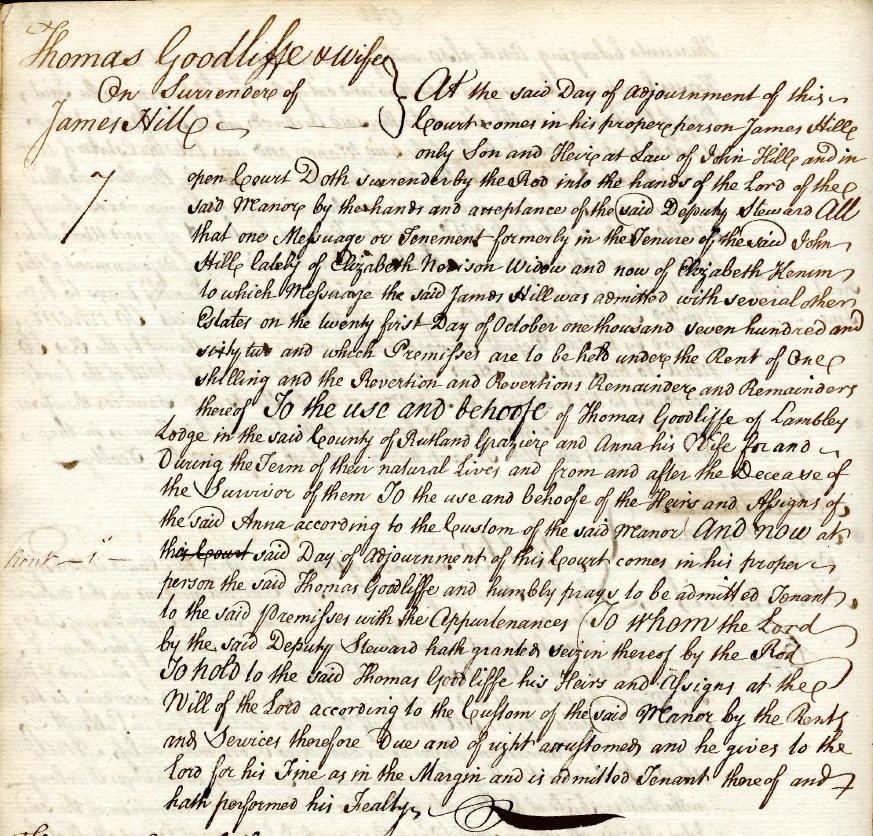 Thomas Goodliffe & wife
On Surrender of
James Hill
At the said Day of Adjournment of this
Court comes in his proper person James Hill
only Son and Heir at Law of John Hill and in
7
open Court Doth surrender by the Rod into the hands of the Lord of the
said Manor by the hands and acceptance of the said Deputy Steward All
that one Messuage or Tenement formerly in the Tenure of the said John
Hill lately of Elizabeth Norison Widow and now of Elizabeth
to which Messuage the said James Hill was admitted with several other
Estates on the twenty first Day of October one thousand seven hundred and
sixty two and which Premisses are to be held under the Rent of One
shilling and the Revertion and Revertions Remainder and Remainders
thereof To the use and behoofe of Thomas Goodliffe of Lambley
Lodge in the said County of Rutland Grazier and Anna his Wife for and
During the Term of their natural Lives and from and after the Decease of
the Survivor of them To the use and behoofe of the Heirs and Assigns of
the said Anna according to the Custom of the said Manor And now at
Rent - 1s -
this Court said Day of Adjournment of this Court comes in his proper
person the said Thomas Goodliffe and humbly prays to be admitted Tenant
to the said Premisses with the Appurtenances To whom the Lord
by the said Deputy Steward hath granted seizin thereof by the Rod
To hold to the said Thomas Goodliffe his Heirs and Assigns at the
Will of the Lord according to the Custom of the said Manor by the Rents
and Services therefore Due and of right accustomed and he gives to the
Lord for his Fine as in the Margin and is admitted Tenant thereof and
hath performed his Fealty